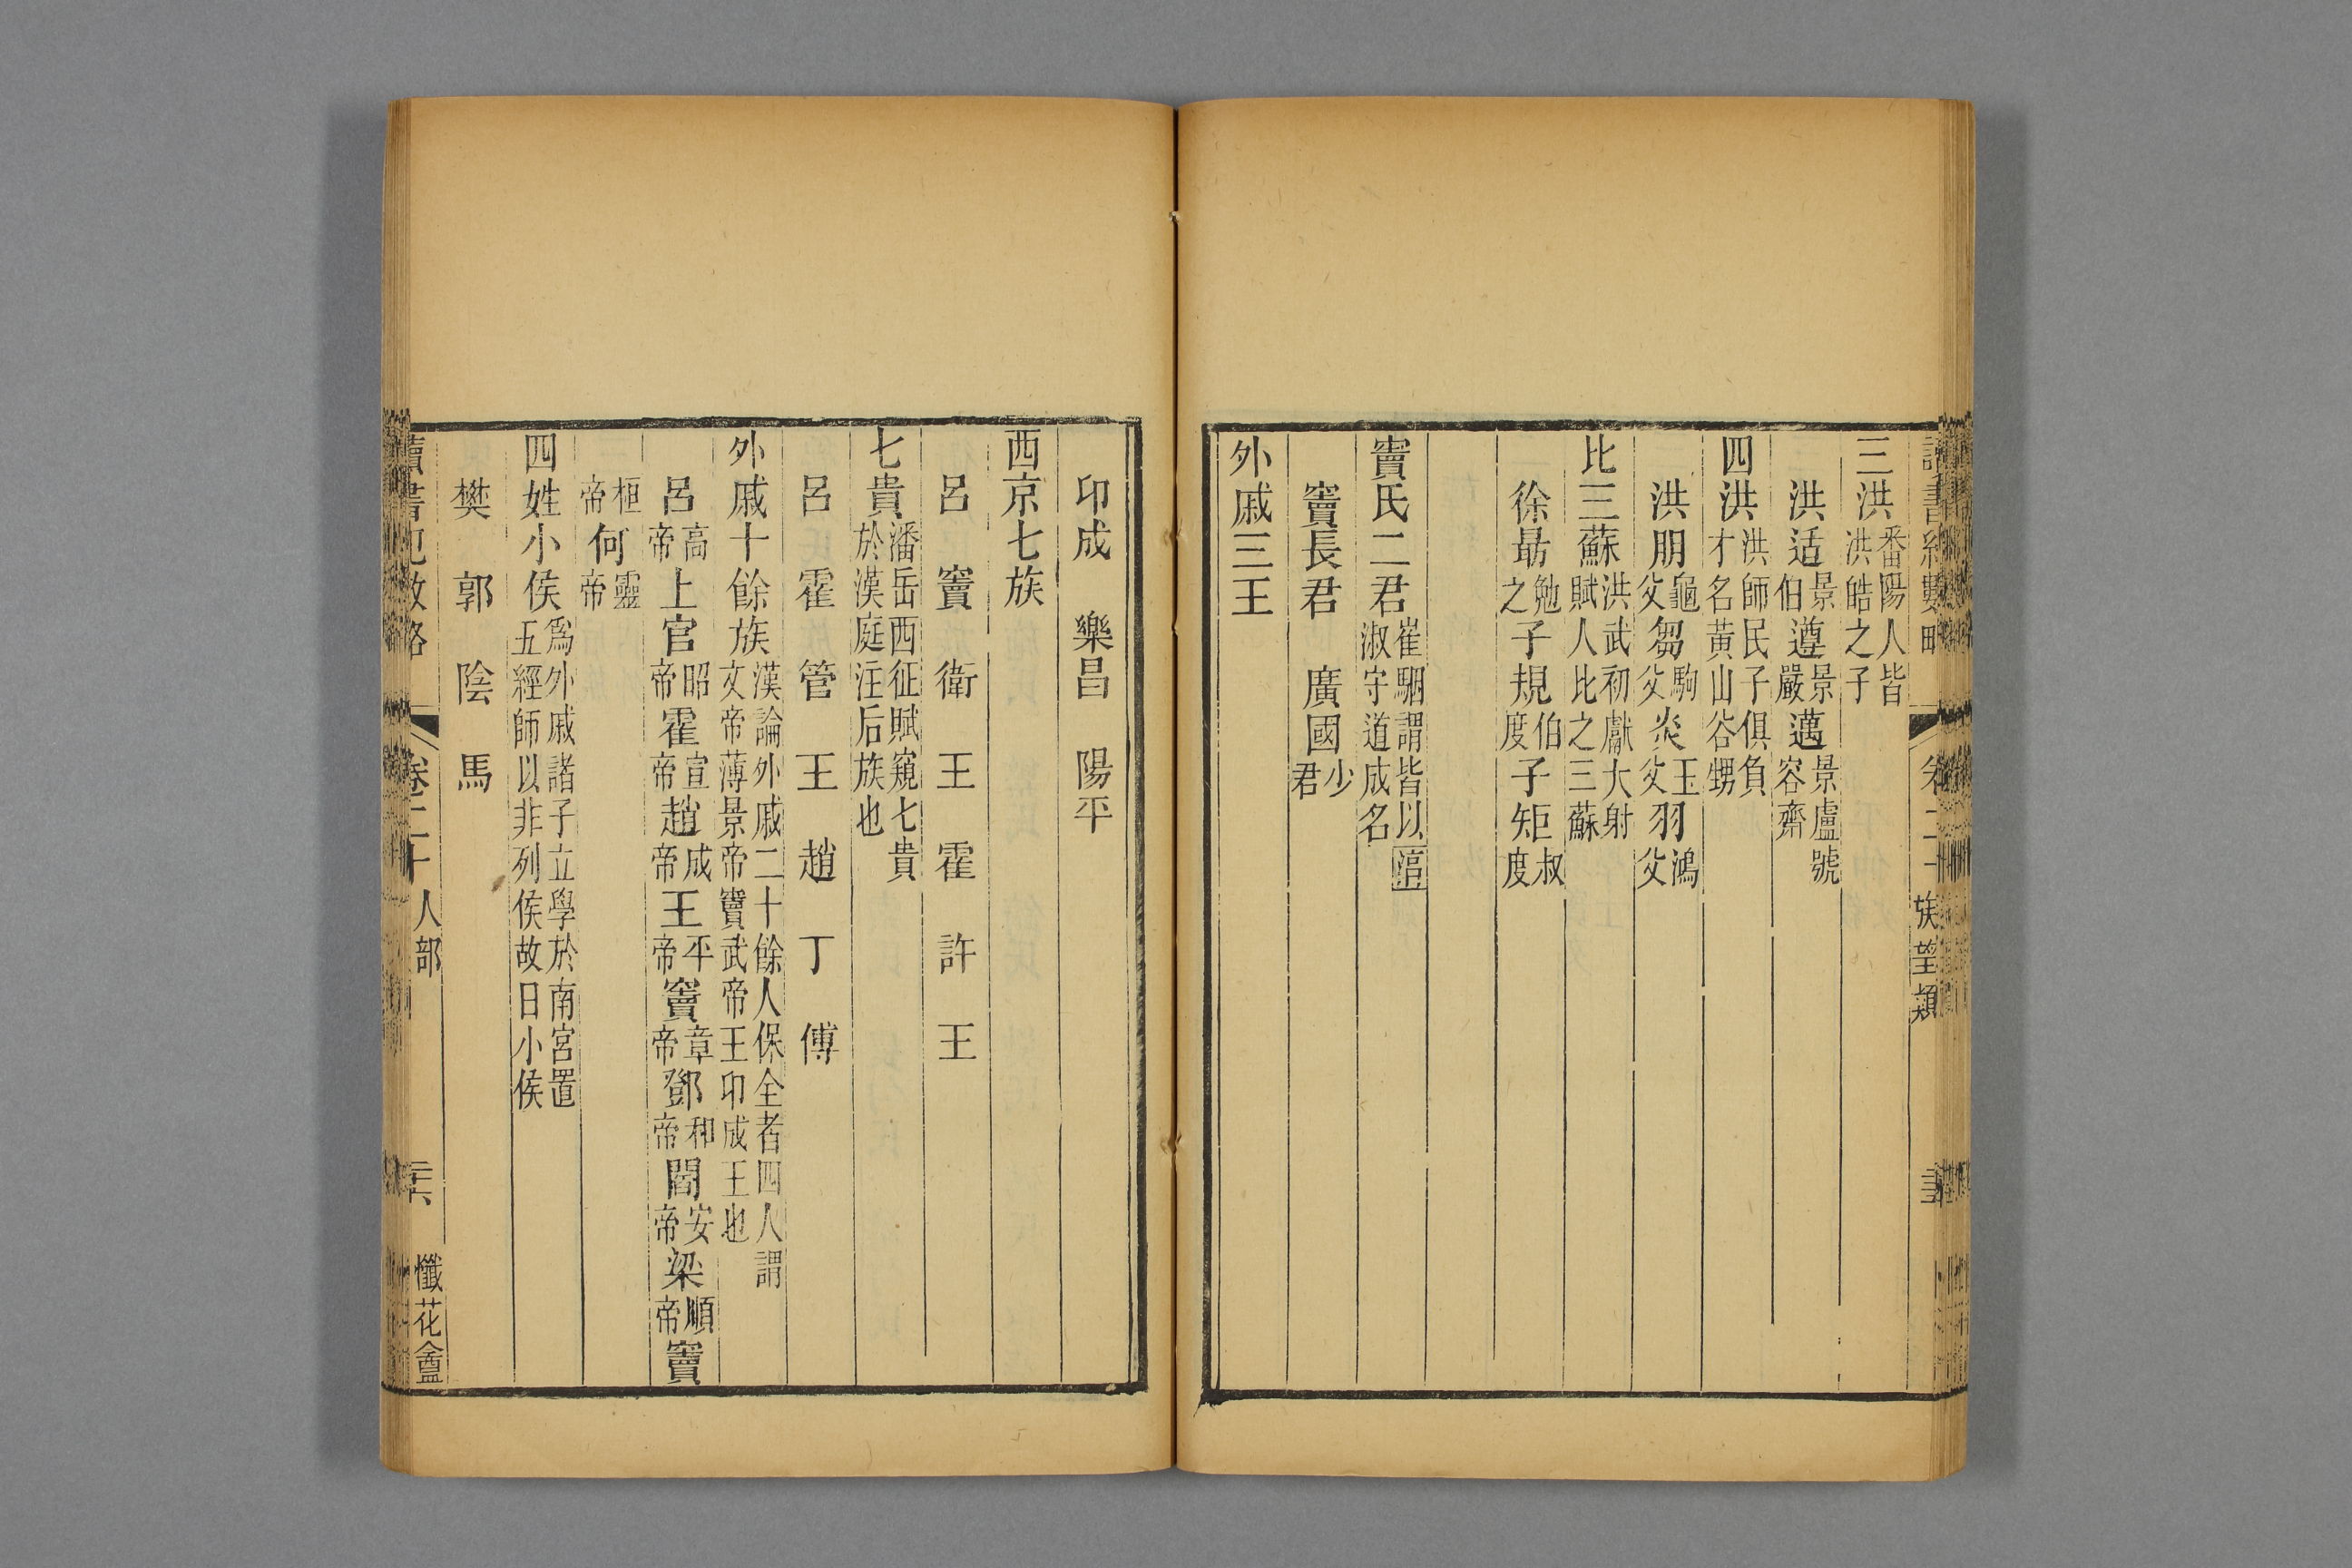 三洪番陽人皆洪皓之子
洪适景伯遵景嚴邁景盧號容齋
四洪洪師民子俱負才名黃山谷甥
洪朋龜父芻駒父炎玉父羽鴻父
比三蘇洪武初獻大射賦人比之三蘇
徐勗勉之子規伯度子矩叔度
竇氏二君崔駰謂皆以淑守道成名
竇長君 廣國少君
外戚三王
卷二十 族望類
卬成 樂昌 陽平
西京七族
呂 竇 衛 王 霍 許 王
七貴潘岳西征賦窺七貴於漢庭注后族也
呂 霍 管 王 趙 丁 傅
外戚十餘族漢論外戚二十餘人保全者四人謂文帝薄景帝竇武帝王卬成王也
呂高帝上官昭帝霍宣帝趙成帝王平帝竇章帝鄧和帝閻安帝梁順帝竇
桓帝何靈帝
四姓小侯爲外戚諸子立學於南宮置五經師以非列侯故曰小侯
樊 郭 陰 馬
讀書記數略 卷二十 人部 二六 懺花盦